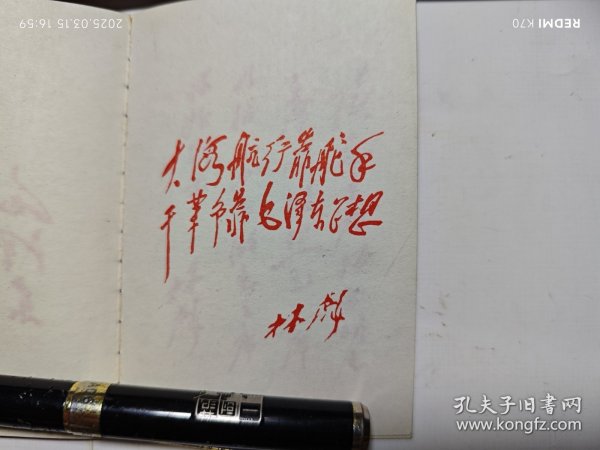 2025.03.15 16:59
REDMI K70
大海航行靠舵手
干革命靠毛泽东思想
林彪
孔夫子旧书网
www.kongfz.com